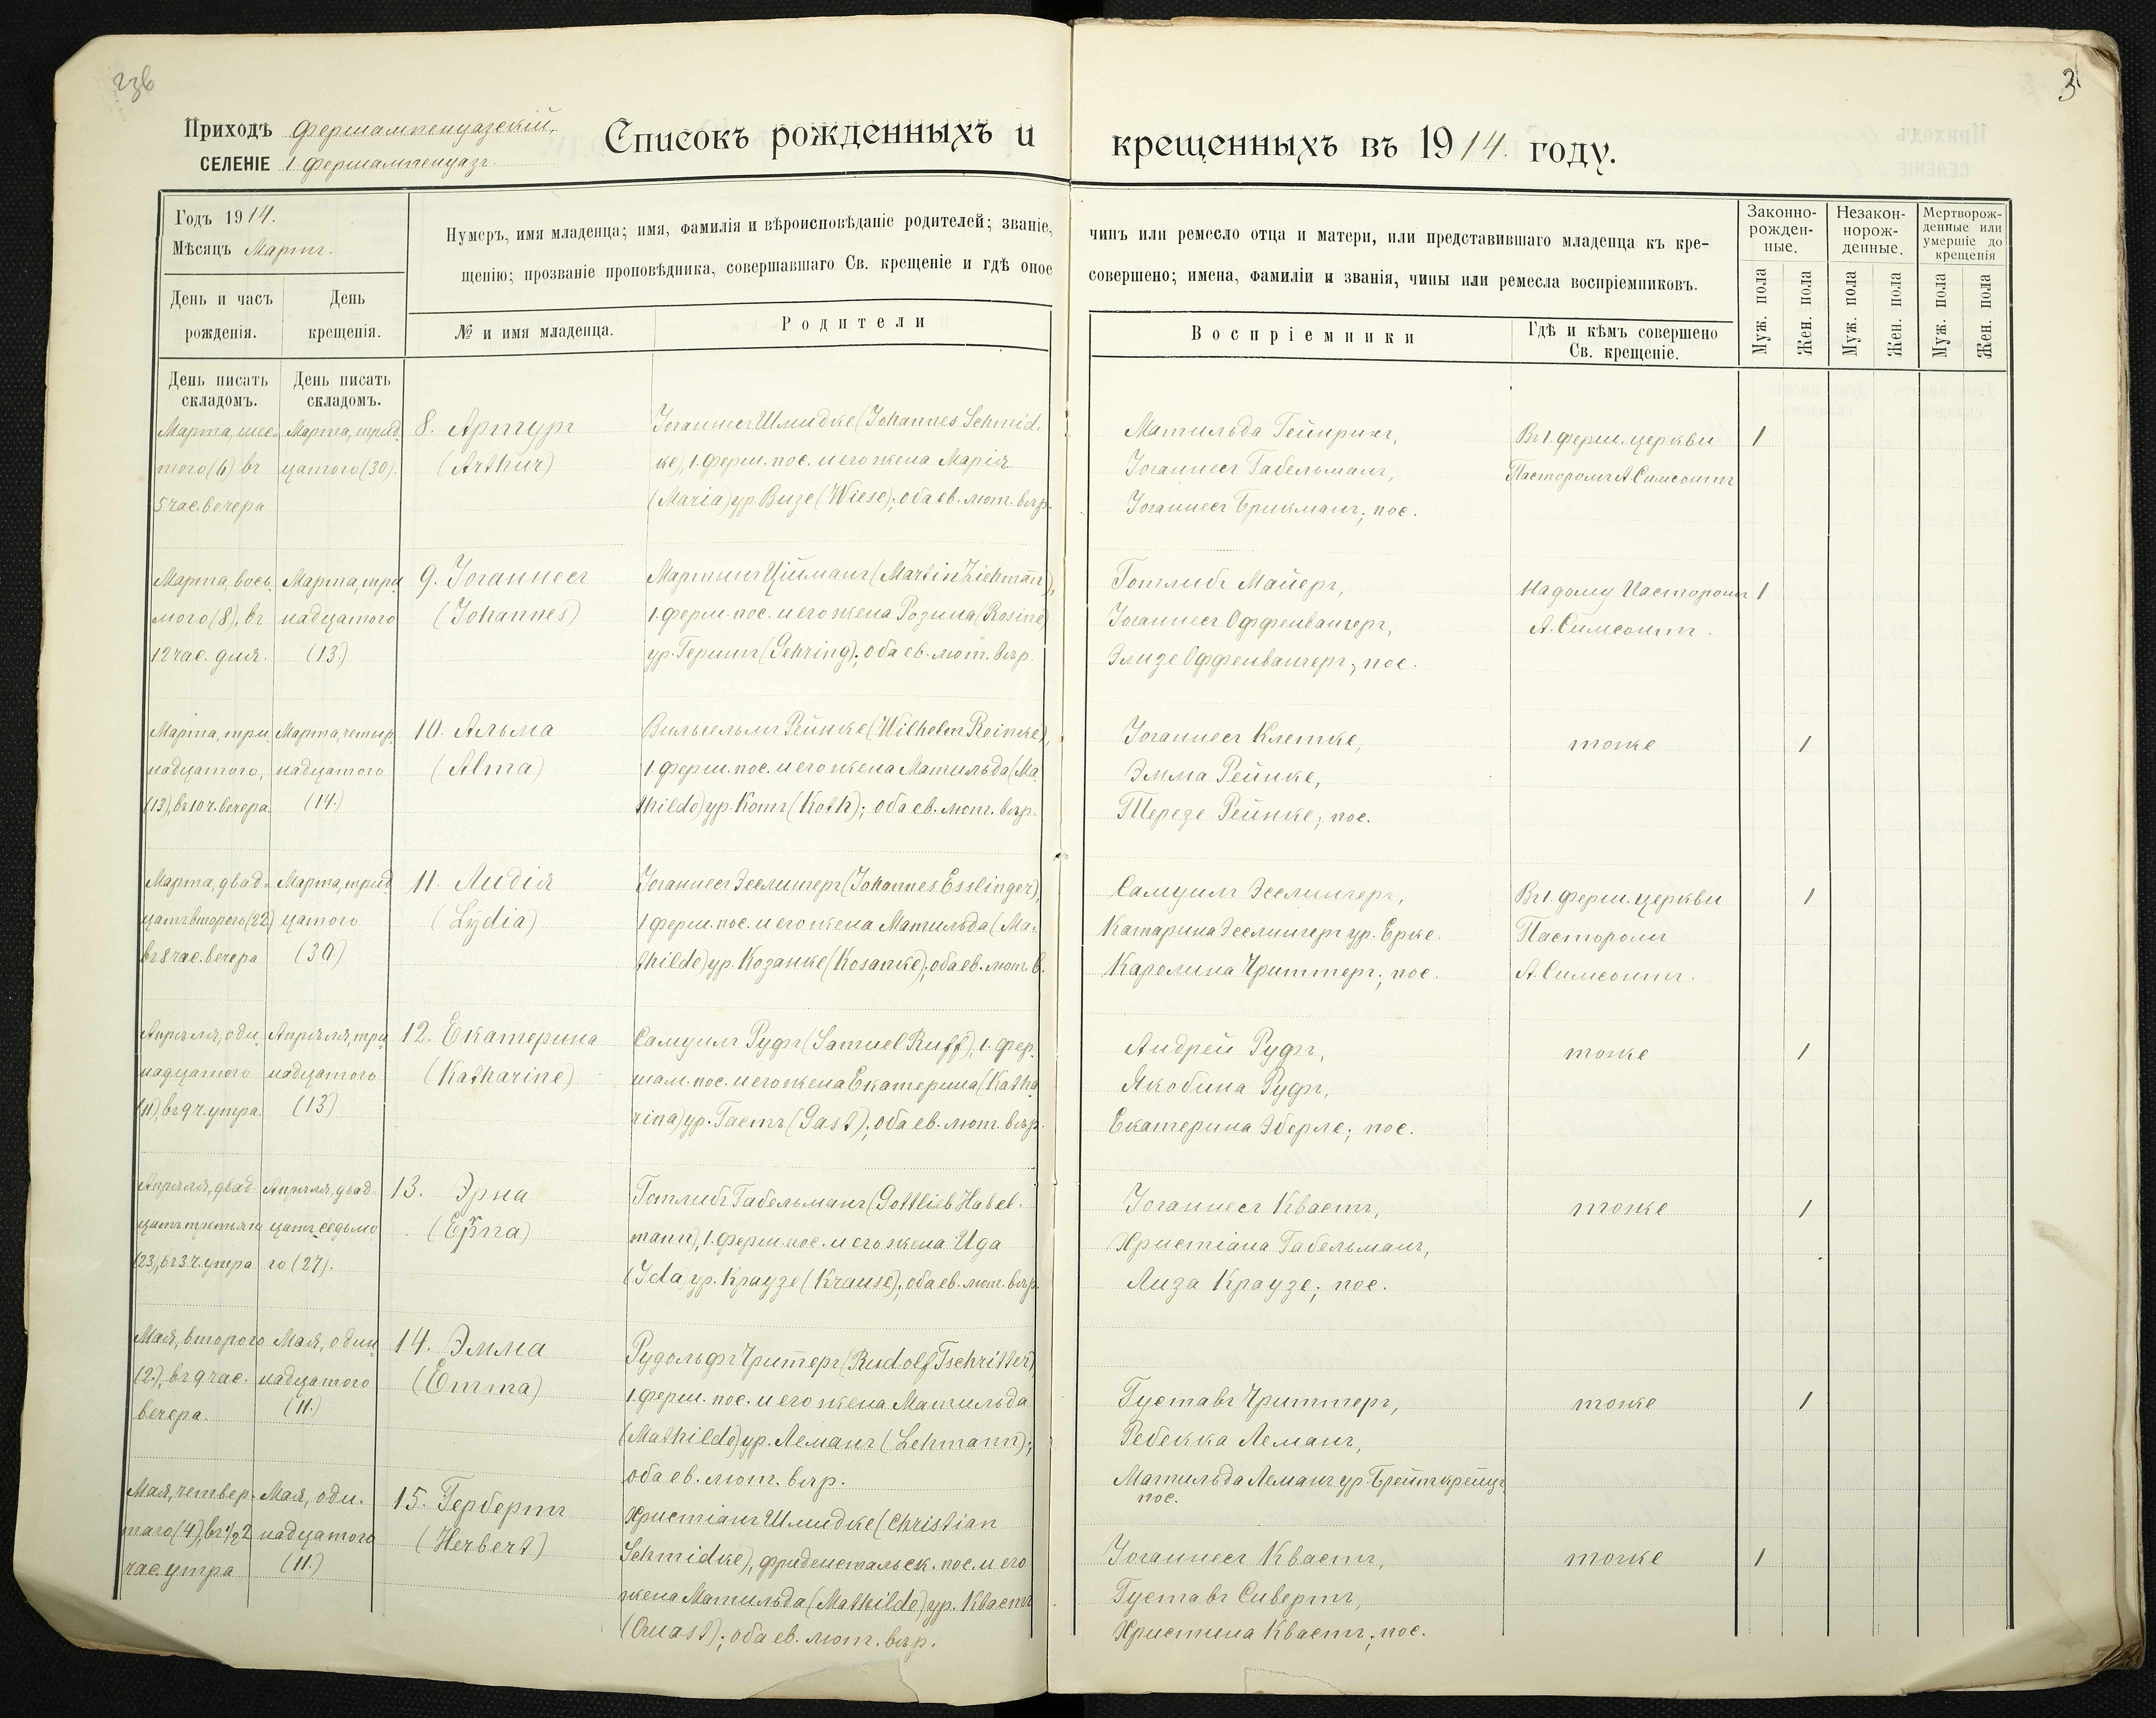 236
3
Приходъ Фершампенуазскій,
СЕЛЕНІЕ 1. Фершампенуазъ.
Списокъ рожденныхъ и крещенныхъ въ 1914. году.
Годъ 1914.
Мѣсяцъ Мартъ.
Нумеръ, имя младенца; имя, фамилія и вѣроисповѣданіе родителей; званіе, чинъ или ремесло отца и матери, или представившаго младенца къ кре-
щенію; прозваніе проповѣдника, совершавшаго Св. крещеніе и гдѣ оное совершено; имена, фамиліи и званія, чины или ремесла воспріемниковъ.
Законно-
рожден-
ные.
Незакон-
норож-
денные.
Мертворож-
денные или
умершіе до
крещенія
День и часъ
рожденія.
День
крещенія.
№ и имя младенца.
Родители
Воспріемники
Гдѣ и кѣмъ совершено
Св. крещеніе.
Муж. пола
Жен. пола
Муж. пола
Жен. пола
Муж. пола
Жен. пола
День писать
складомъ.
День писать
складомъ.
Марта, шес-
того (6) въ
5 час. вечера
Марта, трид
цатого (30).
8. Артуръ
(Arthur)
Іоганнесъ Шмидке (Johannes Schmid-
ke), 1. ферш. пос. и его жена Марія
(Maria) ур. Визе (Wiese); оба ев. лют. вѣр.
Матильда Гейнрихъ,
Іоганнесъ Габельманъ,
Іоганнесъ Брикманъ; пос.
Въ 1. ферш. церкви
Пасторомъ А. Симсонъ
1
Марта, вось-
мого (8), въ
12 час. дня.
Марта, три
надцатого
(13.)
9. Іоганнесъ
(Johannes)
Мартинъ Цiманъ (Martin Ziehmann),
1. ферш. пос. и его жена Розина (Rosine)
ур. Герингъ (Gehring); оба ев. лют. вѣр.
Готлибъ Майеръ,
Іоганнесъ Оффенвангеръ,
Элизе Оффенвангеръ; пос.
На дому Пасторомъ
А. Симсонъ.
1
Марта, три
надцатого,
(13), въ 10 ч. вечера.
Марта, четыр
надцатого
(14.)
10. Альма
(Alma)
Вильгельмъ Рейнке (Wilhelm Reinke),
1. ферш. пос. и его жена Матильда (Ma-
thilde) ур. Котъ (Koth); оба ев. лют. вѣр.
Іоганнесъ Клетке,
Эмма Рейнке,
Терезе Рейнке; пос.
тоже
1
Марта, двад-
цать второго (22)
въ 8 час. вечера
Марта, трид
цатого
(30.)
11. Лидія
(Lydia)
Іоганнесъ Эслингеръ (Johannes Esslinger),
1 ферш. пос. и его жена Матильда (Ma-
thilde) ур. Козанке (Kosanke); оба ев. лют. в.
Самуилъ Эслингеръ,
Катарина Эслингеръ ур. Ерке.
Каролина Чриттеръ; пос.
Въ 1. ферш. церкви
Пасторомъ
А. Симсонъ.
1
Апрѣля, оди
надцатого
(11), въ 9 ч. утра.
Апрѣля, три
надцатого
(13)
12. Екатерина
(Katharine)
Самуилъ Руфъ (Samuel Ruff), 1. фер-
шам. пос. и его жена Екатерина (Katha
rina) ур. Гастъ (Gast), оба ев. лют. вѣр.
Андрей Руфъ,
Якобина Руфъ,
Екатерина Эберле; пос.
тоже
1
Апрѣля, двад-
цать третьяго
(23), въ 3 ч. утра
Апрѣля, двад-
цать седьмо
го (27).
13. Эрна
(Erna)
Готлибъ Габельманъ (Gottlieb Habel-
mann), 1. ферш. пос. и его жена Ида
(Ida) ур. Краузе (Krause), оба ев. лют. вѣр.
Іоганнесъ Квастъ,
Христіана Габельманъ,
Лиза Краузе; пос.
тоже
1
Мая, второго
(2.), въ 9 час.
вечера.
Мая, один
надцатого
(11.)
14. Эмма
(Emma)
Рудольфъ Чритеръ (Rudolf Tschritter)
1. ферш. пос. и его жена Матильда
(Mathilde) ур. Леманъ (Lehmann);
оба ев. лют. вѣр.
Густавъ Чриттеръ,
Ребекка Леманъ,
Матильда Леманъ ур. Брейткрейцъ
пос.
тоже
1
Мая, четвер-
таго (4), въ ½ 2
час. утра
Мая, оди-
надцатого
(11.)
15. Гербертъ
(Herbert)
Христіанъ Шмидке (Christian
Schmidke), фриденстальск. пос. и его
жена Матильда (Mathilde) ур. Квастъ
(Quast); оба ев. лют. вѣр.
Іоганнесъ Квастъ,
Густавъ Сивертъ,
Христина Квастъ; пос.
тоже
1